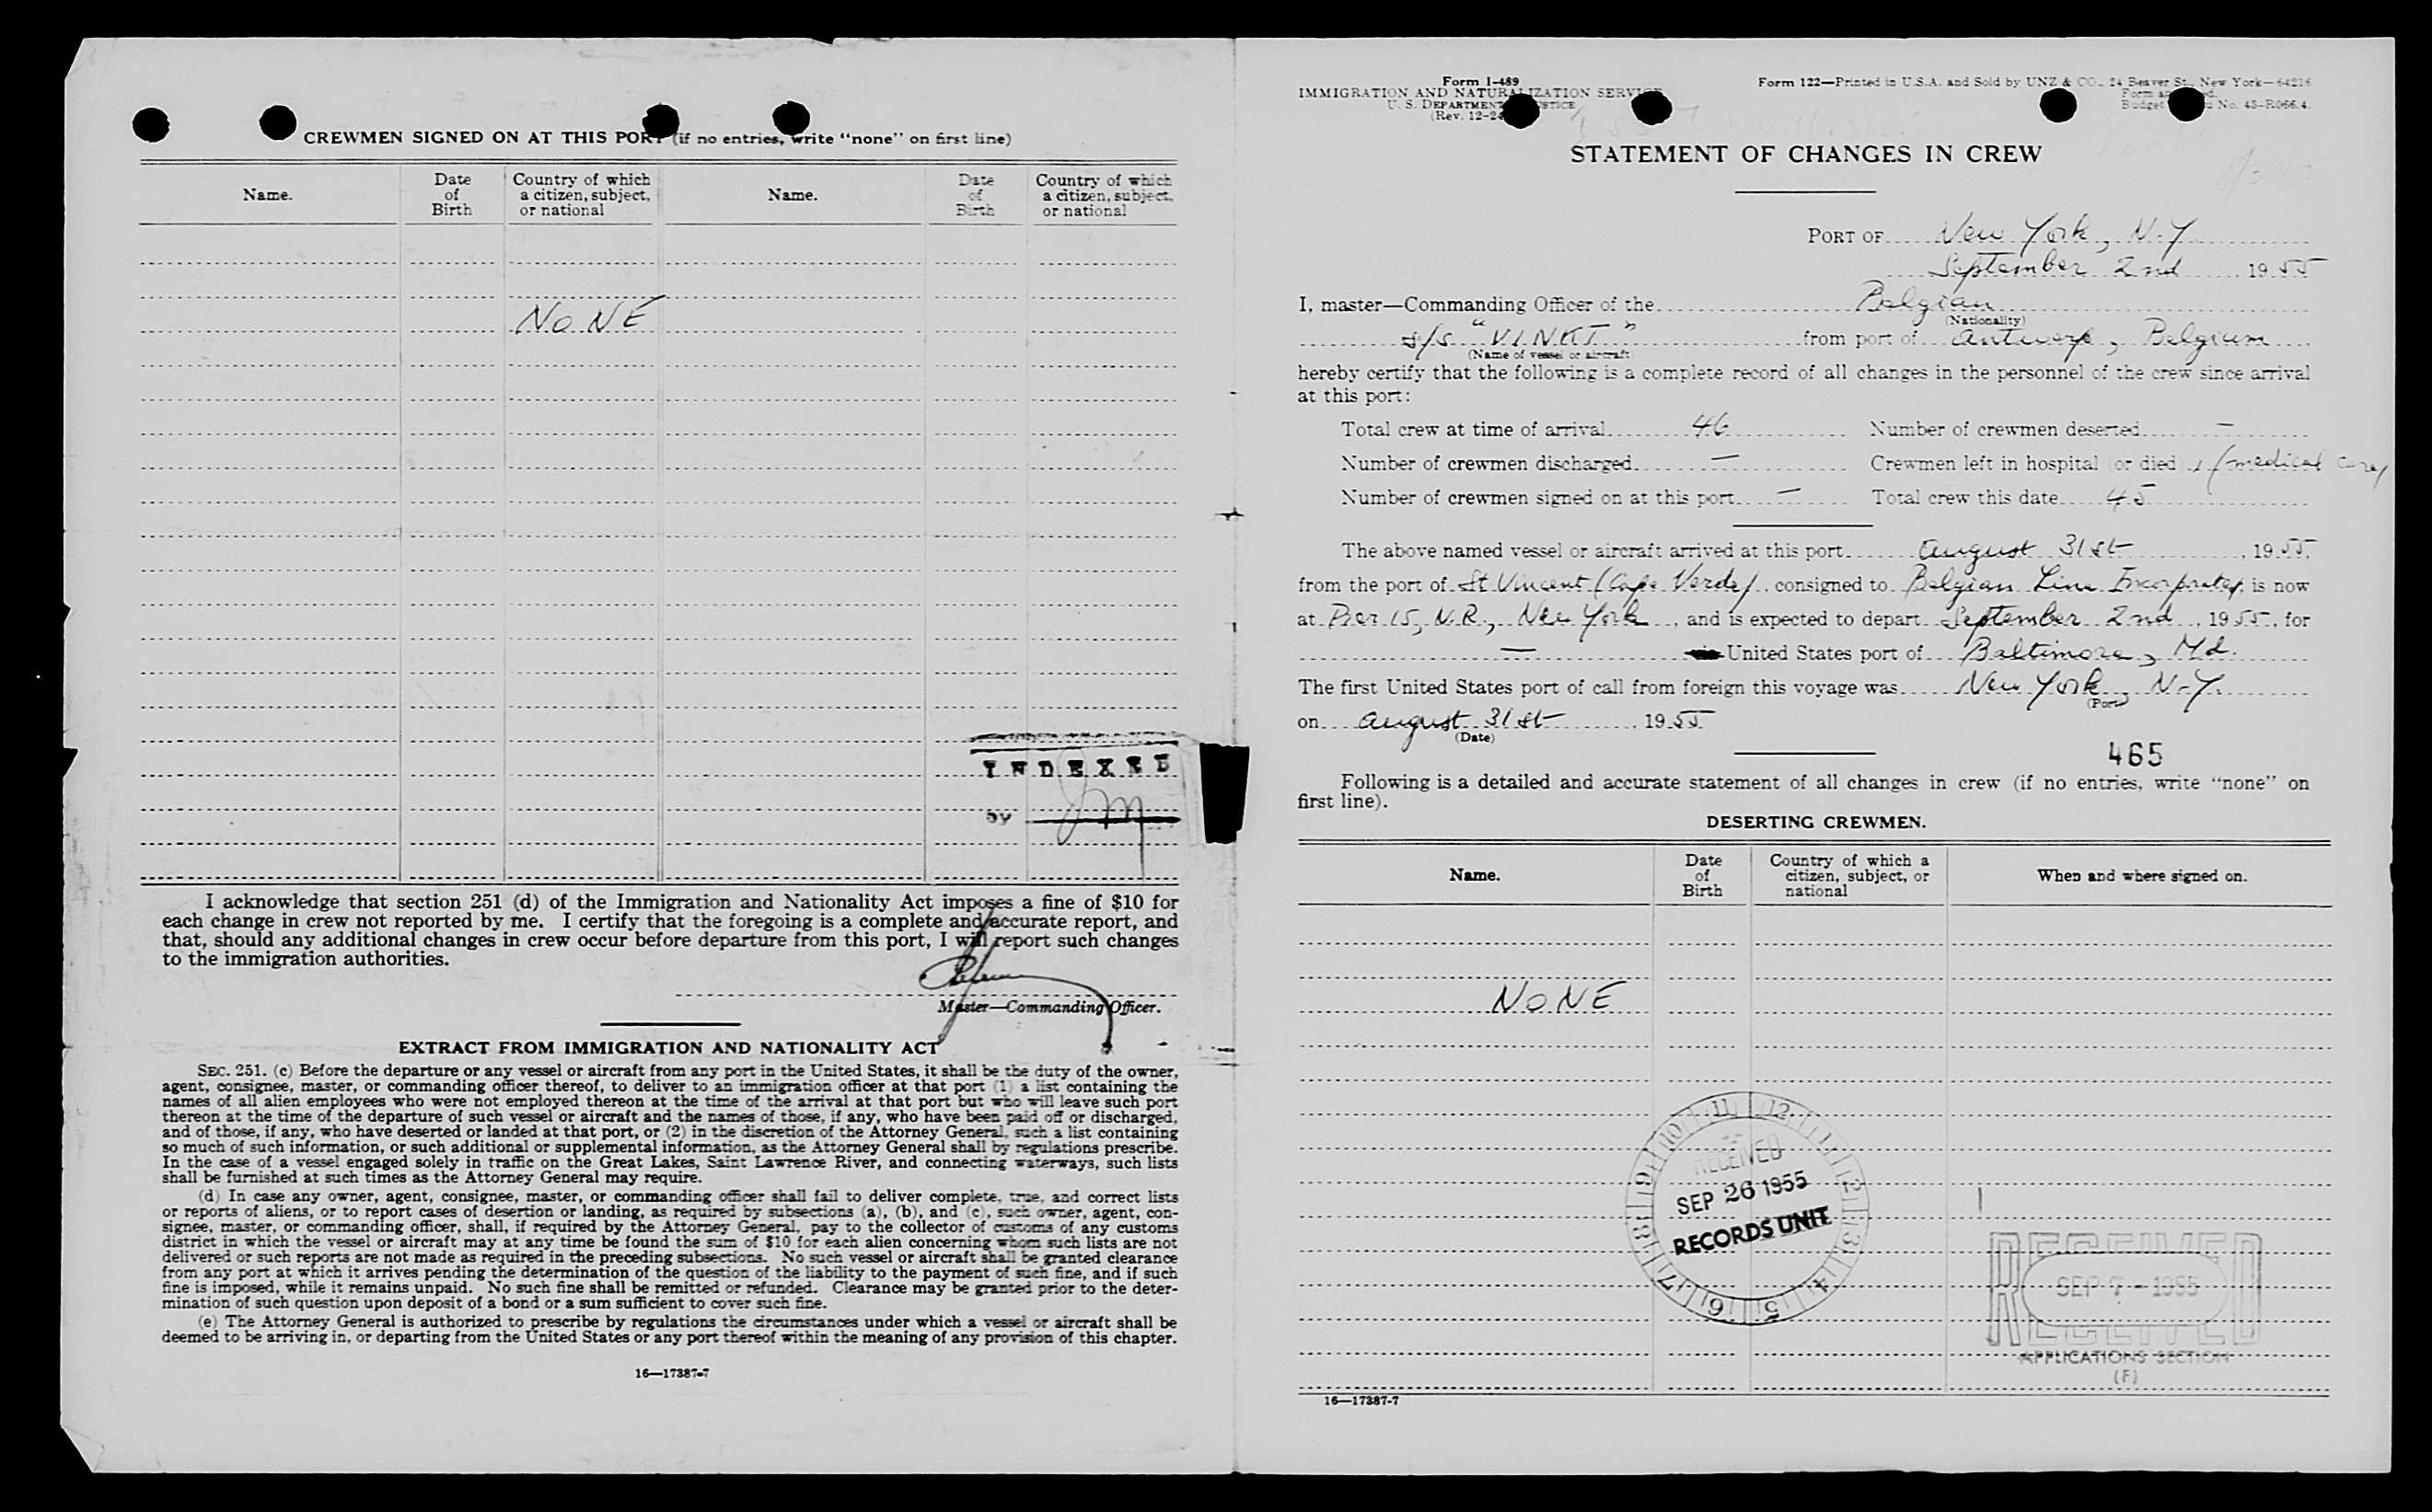 CREWMEN SIGNED ON AT THIS PORT (if no entries, write "none" on first line)
Name. Date of Birth Country of which a citizen, subject, or national Name. Date of Birth Country of which a citizen, subject, or national
NONE
INDEXED
by
I acknowledge that section 251 (d) of the Immigration and Nationality Act imposes a fine of $10 for
each change in crew not reported by me. I certify that the foregoing is a complete and accurate report, and
that, should any additional changes in crew occur before departure from this port, I will report such changes
to the immigration authorities.
Master—Commanding Officer.
EXTRACT FROM IMMIGRATION AND NATIONALITY ACT
SEC. 251. (c) Before the departure or any vessel or aircraft from any port in the United States, it shall be the duty of the owner,
agent, consignee, master, or commanding officer thereof, to deliver to an immigration officer at that port (1) a list containing the
names of all alien employees who were not employed thereon at the time of the arrival at that port but who will leave such port
thereon at the time of the departure of such vessel or aircraft and the names of those, if any, who have been paid off or discharged,
and of those, if any, who have deserted or landed at that port, or (2) in the discretion of the Attorney General, such a list containing
so much of such information, or such additional or supplemental information, as the Attorney General shall by regulations prescribe.
In the case of a vessel engaged solely in traffic on the Great Lakes, Saint Lawrence River, and connecting waterways, such lists
shall be furnished at such times as the Attorney General may require.
(d) In case any owner, agent, consignee, master, or commanding officer shall fail to deliver complete, true, and correct lists
or reports of aliens, or to report cases of desertion or landing, as required by subsections (a), (b), and (c), such owner, agent, con-
signee, master, or commanding officer, shall, if required by the Attorney General, pay to the collector of customs of any customs
district in which the vessel or aircraft may at any time be found the sum of $10 for each alien concerning whom such lists are not
delivered or such reports are not made as required in the preceding subsections. No such vessel or aircraft shall be granted clearance
from any port at which it arrives pending the determination of the question of the liability to the payment of such fine, and if such
fine is imposed, while it remains unpaid. No such fine shall be remitted or refunded. Clearance may be granted prior to the deter-
mination of such question upon deposit of a bond or a sum sufficient to cover such fine.
(e) The Attorney General is authorized to prescribe by regulations the circumstances under which a vessel or aircraft shall be
deemed to be arriving in, or departing from the United States or any port thereof within the meaning of any provision of this chapter.
16—17387-7
Form I-489
IMMIGRATION AND NATURALIZATION SERVICE
U. S. DEPARTMENT JUSTICE
(Rev. 12-24
Form 122—Printed in U.S.A. and Sold by UNZ & CO., 24 Beaver St., New York—64216
Budget No. 43-R066.4.
STATEMENT OF CHANGES IN CREW
PORT OF New York, N.Y.
September 2nd, 1955
I, master—Commanding Officer of the Belgian
(Nationality)
s/s "VINKT" from port of Antwerp, Belgium
(Name of vessel or aircraft)
hereby certify that the following is a complete record of all changes in the personnel of the crew since arrival
at this port:
Total crew at time of arrival 46 Number of crewmen deserted —
Number of crewmen discharged — Crewmen left in hospital (or died) 1 (medical care)
Number of crewmen signed on at this port — Total crew this date 45
The above named vessel or aircraft arrived at this port August 31st, 1955,
from the port of St Vincent (Cape Verde), consigned to Belgian Line Incorporated, is now
at Pier 15, N.R., New York, and is expected to depart September 2nd, 1955, for
— United States port of Baltimore, Md.
The first United States port of call from foreign this voyage was New York, N.Y.
(Port)
on August 31st, 1955
(Date)
465
Following is a detailed and accurate statement of all changes in crew (if no entries, write "none" on
first line).
DESERTING CREWMEN.
Name. Date of Birth Country of which a citizen, subject, or national When and where signed on.
NONE
11 12 1 2 3 4 5 6 7 8 9 10
RECEIVED
SEP 26 1955
RECORDS UNIT
RECEIVED
SEP 7 - 1955
RECEIVED
APPLICATIONS SECTION
(F)
16—17387-7